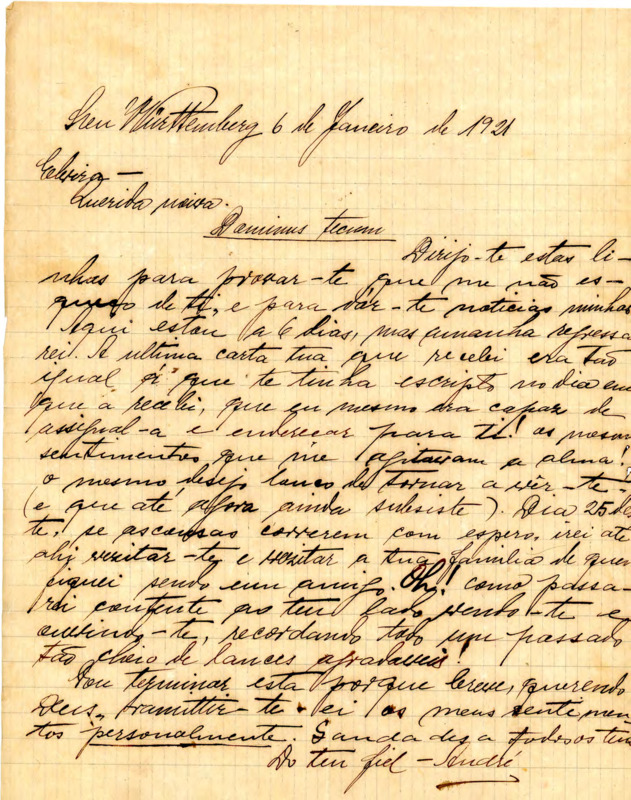 Neu Württemberg 6 de Janeiro de 1921
Elvira —
Querida noiva.
Dominus tecum
Dirijo-te estas li-
nhas para provar-te que me não es-
queço de ti, e para dár-te noticias minhas
Aqui estou a 6 dias, mas amanha regressa
rei. A ultima carta tua que recebi era tão
igual á que te tinha escripto no dia em
que a recebi, que eu mesmo era capaz de
assignal-a e endereçar para ti! os mesmos
sentimentos que me agitavam a alma!
o mesmo desejo louco de tornar a vêr-te-
(e que até agora ainda subsiste). Dia 25 des
te, se as cousas correrem com espero, irei até
ahi vezitar-te e vezitar a tua familia de quem
fiquei sendo um amigo. Oh! como passa-
rei contente ao teu lado vendo-te e
ouvindo-te, recordando todo um passado
tão cheio de lances agradaveis!
Vou terminar esta porque breve, querendo
Deus, tramittir-te-ei os meus sentimen-
tos personalmente. Saudades a todos os teus
Do teu fiel - André